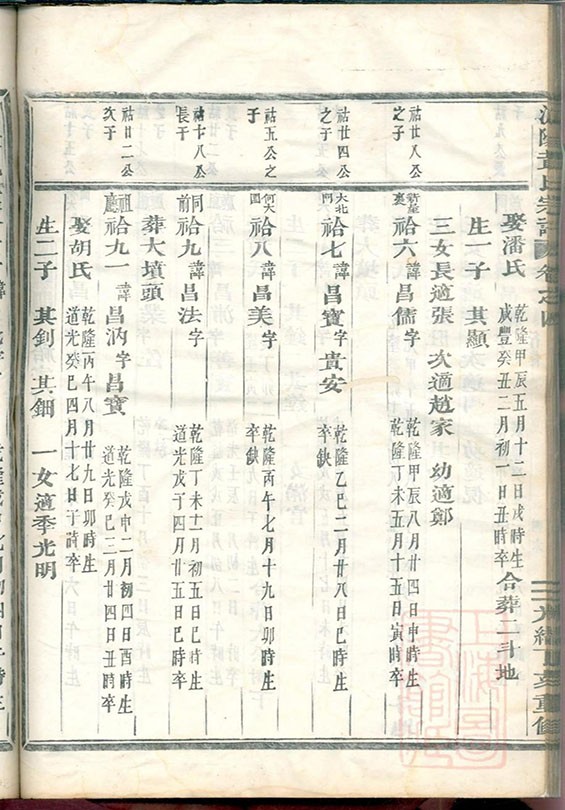 娶潘氏 乾隆甲辰五月十二日戌時生 咸豐癸丑二月初一日丑時卒 合葬二斗地
生一子 其顯
三女長適張 次適趙家 幼適鄭
祜廿八公之子 祫六 諱昌儒字 乾隆甲辰八月廿四日申時生 乾隆丁未五月十五日寅時卒
祜廿四公之子 大北 祫七 諱昌寶字貴安 乾隆乙巳二月廿八日巳時生 卒缺
祜五公之子 祫八 諱昌美字 乾隆丙午七月十九日卯時生 卒缺
祜十八公長子 同前 祫九 諱昌法字 乾隆丁未十二月初五日巳時生 道光戊子四月廿五日巳時卒
葬大墳頭
祜廿二公次子 祖廳 祫九一 諱昌汭字昌賓 乾隆戊申二月初四日酉時生 道光癸巳三月廿四日丑時卒
娶胡氏 乾隆丙午八月廿九日卯時生 道光癸巳四月十七日子時卒
生二子 其釗 其鋼 一女適季光明